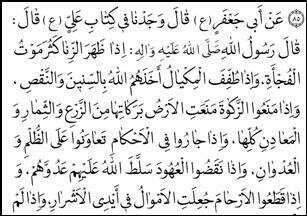 (٨٥) عَنْ أَبِي جَعْفَرٍ (ع) قَالَ وَجَدْنَا فِي كِتَابِ عَلِيٍّ (ع) قَالَ:
قَالَ رَسُولُ اللهِ صَلَّى اللهُ عَلَيْهِ وَالِهِ: اِذَا ظَهَرَ الزِّنَا كَثُرَ مَوْتُ
الْفُجْأَةِ. وَاِذَا طُفِّفَ الْمِكْيَالُ أَخَذَهُمُ اللهُ بِالسِّنِينَ وَالنَّقْصِ.
وَاِذَا مَنَعُوا الزَّكٰوةَ مَنَعَتِ الْاَرْضُ بَرَكَاتِهَا مِنَ الزَّرْعِ وَالثِّمَارِ وَ
الْمَعَادِنِ كُلِّهَا. وَاِذَا جَارُوا فِي الْاَحْكَامِ تَعَاوَنُوا عَلَى الظُّلْمِ وَ
الْعُدْوَانِ. وَاِذَا نَقَضُوا الْعُهُودَ سَلَّطَ اللهُ عَلَيْهِمْ عَدُوَّهُمْ. وَ
اِذَا قَطَعُوا الْاَرْحَامَ جُعِلَتِ الْاَمْوَالُ فِي أَيْدِي الْاَشْرَارِ. وَاِذَا لَمْ